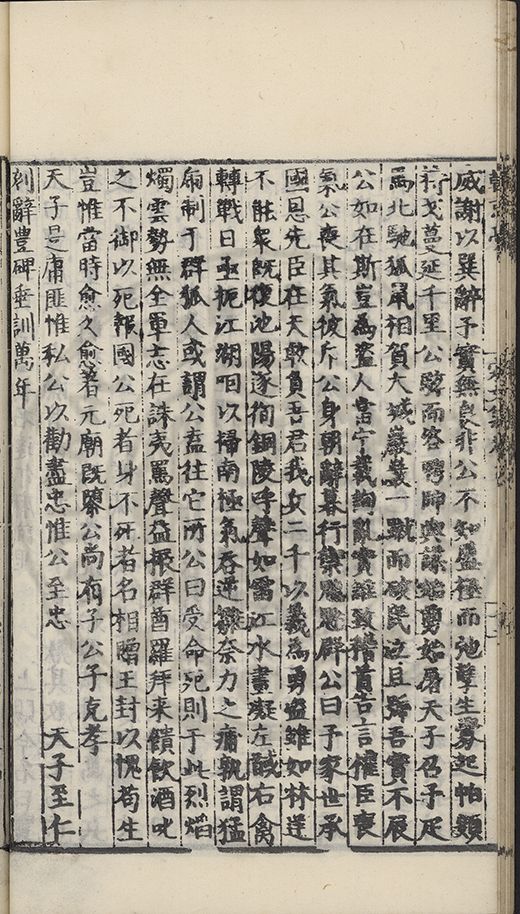 感謝以巽辭予實無良非公不知盛極而弛孽生釁起怕顙
荷戈蔓延千里公殺而容聘師與謀始勇始屠天子召予疋
馬北馳狐鼠相賀大城巖巖一蹴而破民泣且號吾實不展
公如在斯豈為盜人富宁義絢亂實誰致稽首告言僅臣喪
氣公喪其氣彼斥公身朝辭暮行樂群公曰予家世承
國恩先臣在天敢負吾君我女二千以義為勇盜雖如林逆
不能眾既復池陽遂徇銅陵呼聲如雷江水晝凝左馘右禽
轉戰日亟扼江湖咽以掃南極氣吞逆雛奈力之痡孰謂猛
扇制于群狐人或謂公盍往它所公曰受命死則于此烈熖
燭雲勢無全軍志在誅夷罵聲益振群酋羅拜来饋飲酒叱
之不御以死報國公死者身不死者名相贈王封以愧苟生
豈惟當時愈久愈著元廟既隳公尚有子公子克孝
天子是庸匪惟私公以勸盡忠惟公至忠 天子至仁
刻辭豐碑垂訓萬年